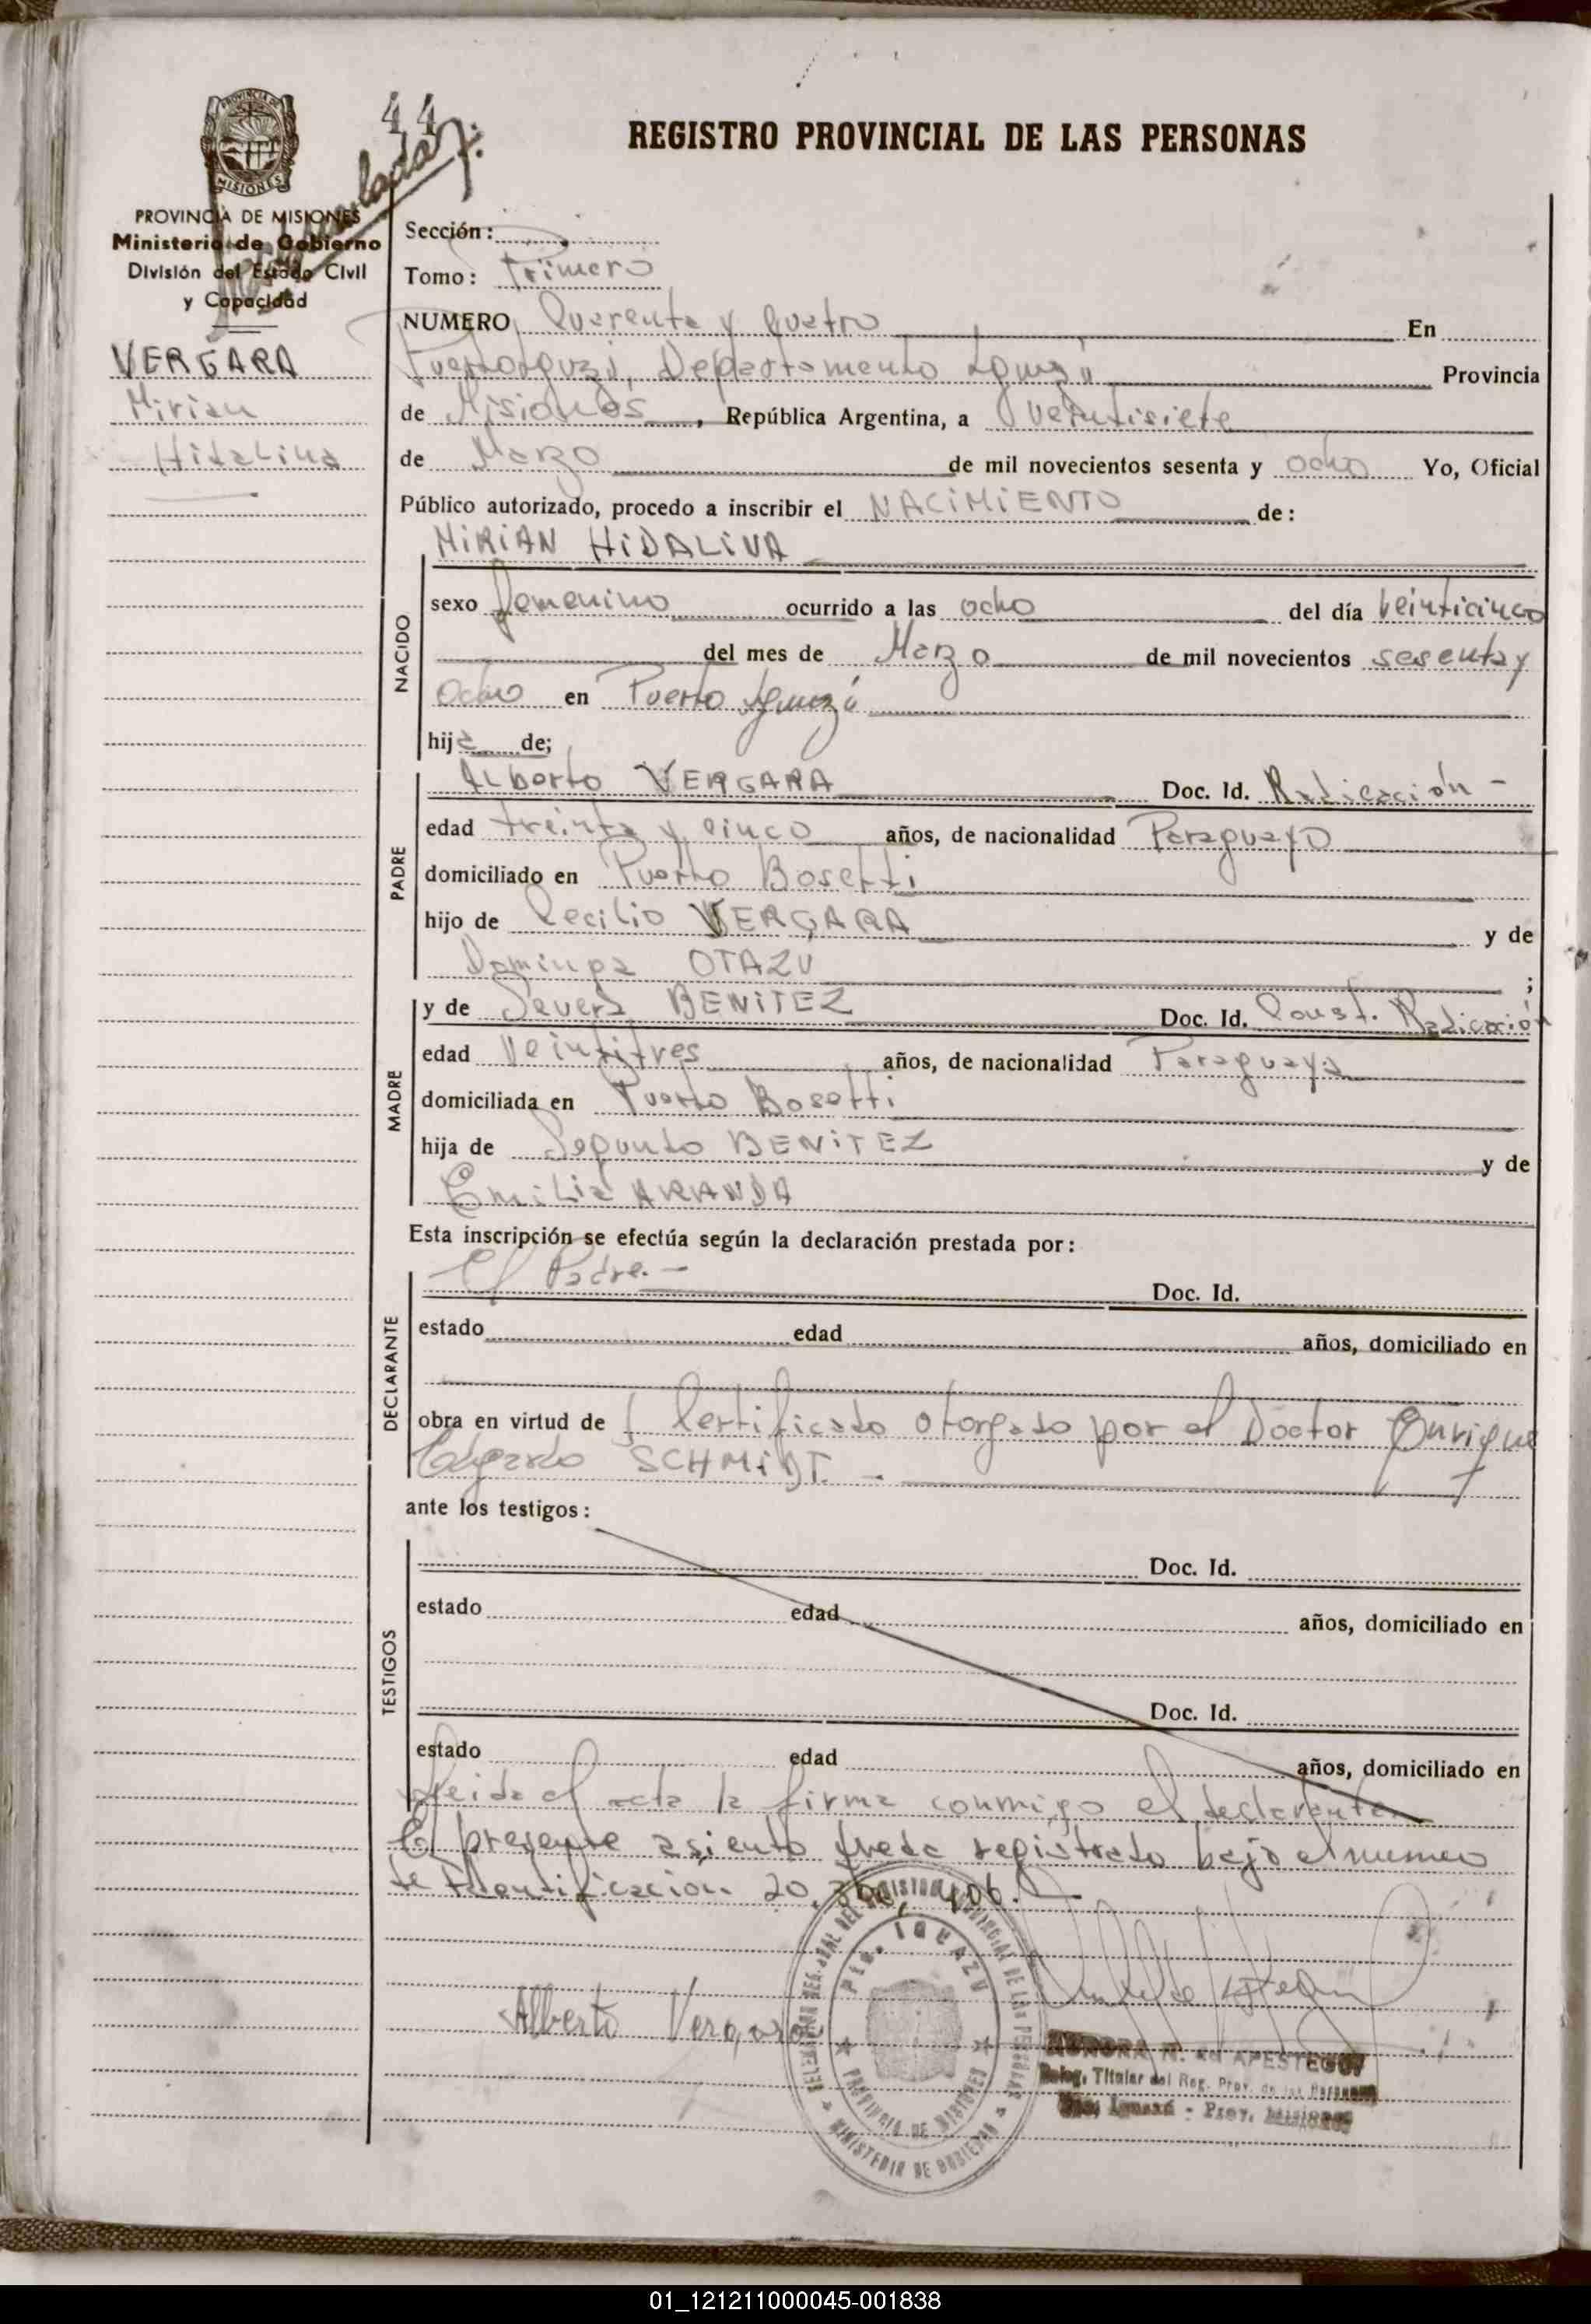 44
REGISTRO PROVINCIAL DE LAS PERSONAS
PROVINCIA DE MISIONES
MISIONES
PROVINCIA DE MISIONES
Ministerio de Gobierno
División del Estado Civil
y Capacidad
VERGARA
Mirian
Hidalina
Sección:
Tomo: Primero
NUMERO Cuarenta y Cuatro En
Puerto Iguazú, Departamento Iguazú Provincia
de Misiones, República Argentina, a veintisiete
de Marzo de mil novecientos sesenta y ocho Yo, Oficial
Público autorizado, procedo a inscribir el NACIMIENTO de:
MIRIAN HIDALINA
NACIDO
sexo Femenino ocurrido a las ocho del día veinticinco
del mes de Marzo de mil novecientos sesenta y
ocho en Puerto Iguazú
hija de;
PADRE
Alberto VERGARA Doc. Id. Radicación -
edad treinta y cinco años, de nacionalidad Paraguayo
domiciliado en Puerto Bosetti
hijo de Cecilio VERGARA y de
Dominga OTAZU ;
MADRE
y de Severa BENITEZ Doc. Id. Const. Radicación
edad Veintitres años, de nacionalidad Paraguaya
domiciliada en Puerto Bosetti
hija de Segundo BENITEZ y de
Emilia ARANDA
Esta inscripción se efectúa según la declaración prestada por:
DECLARANTE
El Padre.- Doc. Id.
estado edad años, domiciliado en
obra en virtud de Certificado otorgado por el Doctor Enrique
Edgardo SCHMIDT. -
ante los testigos:
TESTIGOS
Doc. Id.
estado edad años, domiciliado en
Doc. Id.
estado edad años, domiciliado en
Leida el acta la firma conmigo el declarante.
El presente asiento queda registrado bajo el numero
de Identificación 20. 406.
Alberto Vergara
DELEGACION REGIONAL DEL REGISTRO PROVINCIAL DE LAS PERSONAS
PTO. IGUAZU
PROVINCIA DE MISIONES
MINISTERIO DE GOBIERNO
AURORA N. de APESTEGUI
Deleg. Titular del Reg. Prov. de las Personas
Pto. Iguazú - Prov. Misiones
01_121211000045-001838